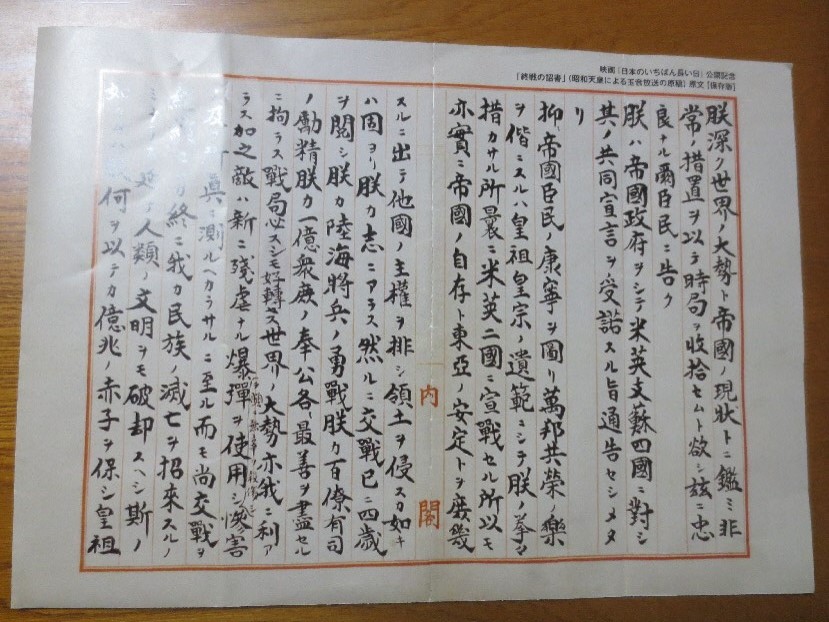 映画「日本のいちばん長い日」公開記念
「終戦の詔書」(昭和天皇による玉音放送の原稿) 原文 [保存版]
朕深ク世界ノ大勢ト帝國ノ現狀トニ鑑ミ非
常ノ措置ヲ以テ時局ヲ收拾セムト欲シ玆ニ忠
良ナル爾臣民ニ告ク
朕ハ帝國政府ヲシテ米英支蘇四國ニ對シ
其ノ共同宣言ヲ受諾スル旨通告セシメタ
リ
抑〻帝國臣民ノ康寧ヲ圖リ萬邦共榮ノ樂
ヲ偕ニスルハ皇祖皇宗ノ遺範ニシテ朕ノ拳〻
措カサル所曩ニ米英二國ニ宣戰セル所以モ
亦實ニ帝國ノ自存ト東亞ノ安定トヲ庶幾
內閣
スルニ出テ他國ノ主權ヲ排シ領土ヲ侵スカ如キ
ハ固ヨリ朕カ志ニアラス然ルニ交戰已ニ四歲
ヲ閱シ朕カ陸海將兵ノ勇戰朕カ百僚有司
ノ勵精朕カ一億衆庶ノ奉公各〻最善ヲ盡セル
ニ拘ラス戰局必スシモ好轉セス世界ノ大勢亦我ニ利ア
ラス加之敵ハ新ニ殘虐ナル爆彈ヲ使用シ
無辜ヲ殺傷シ慘害
眞ニ測ルヘカラサルニ至ル而モ尙交戰ヲ
終ニ我カ民族ノ滅亡ヲ招來スルノ
人類ノ文明ヲモ破却スヘシ斯ノ
何ヲ以テカ億兆ノ赤子ヲ保シ皇祖